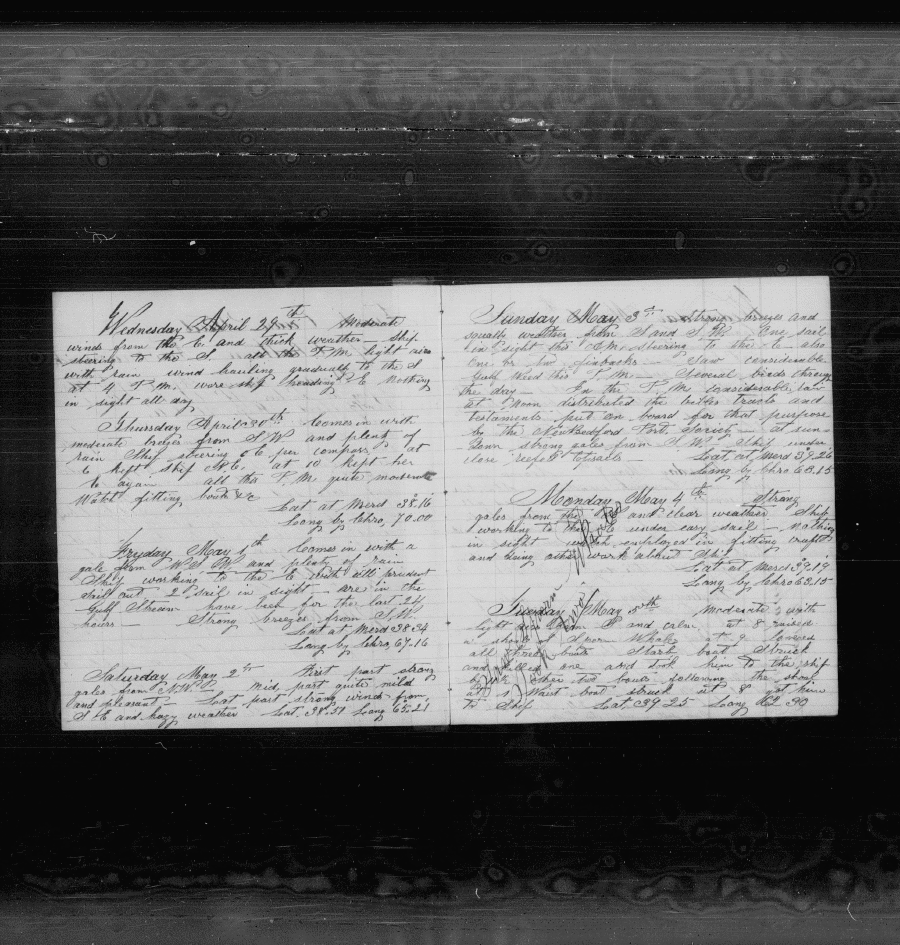 Wednesday April 29th Moderate
winds from the E and thick weather Ship
steering to the S all the P.M. light airs
with rain wind hauling gradualy to the S
at 4 P.M. wore ship heading E Nothing
in sight all day
Thursday April 30th Comes in with
moderate brezes from S W and plenty of
rain Ship steering E per compass at
6 kept ship N.E. at 10 kept her
E again all the P.M. quite moderate
Watch fitting boats &c
Lat at Merid 38.16
Long by Chro, 70.00
Fryday May 1th Comes in with a
gale from W S W and plenty of rain
Ship working to the E with all prudent
sail out 2 sail in sight are in the
Gulf Stream have been for the last 24
hours Strong breezes from S.W.
Lat at Merid 38 34
Long by Chro, 67.16
Saturday May 2nd First part strong
gales from N.W. Mid, part quite mild
and pleasant Last part strong winds from
S E and hazy weather Lat. 38.51 Long 65.21
Sunday May 3rd strong brezes and
squally weather from S and S.W. One sail
in sight this A.M. steering to the E also
one or two finbacks Saw considerable
Gulf weed this P.M. Several birds through
the day In the P.M. considerable rain
at Noon distributed the bibles tracts and
testaments put on board for that purpose
by the New Bedford Port Society at sun-
down strong gales from S W, Ship under
close reefed topsails
Lat at Merd 39.26
Long by Chro 65.15
Monday May 4th Strong
gales from the and clear weather Ship
working to the E under easy sail Nothing
in sight watch employed in fitting craft
and doing other work about Ship
Lat at Merd 39.19
Long by Chro 63.15
Tuesday May 5th Moderate with
light airs from S and calm at 8 raised
a shoal of Sperm Whales at 9 lowered
all four boats Starb boat Struck
and killed one and took him to the ship
other two boats following the shoal
at 1 Waist boat struck at 8 got him
to Ship Lat 39 25 Long 62 30